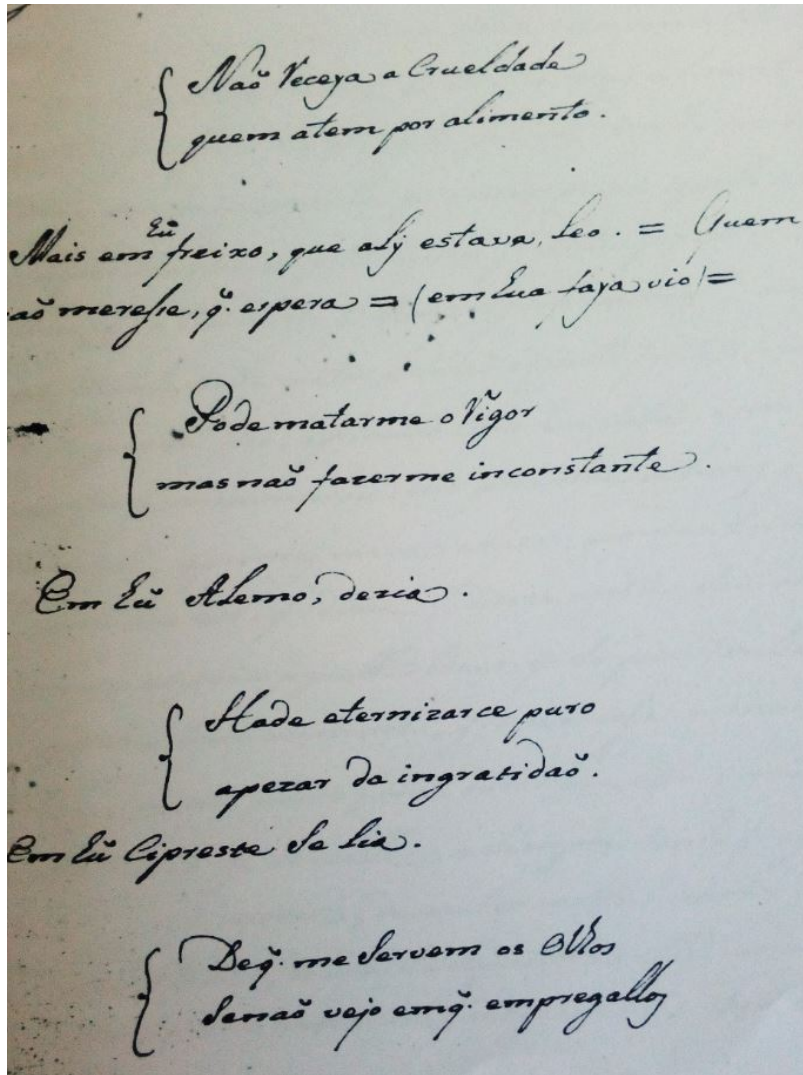 Naõ Receya a Crueldade
quem atem por alimento.
Eũ
Mais em freixo, que aly estava, Leo. = Quem
aõ merese, q̃. espera = (em Eua faya vio) =
Pode matarme o Rigor
mas naõ fazerme inconstante.
Em Eũ Alemo, dezia.
Hade eternizarce puro
apezar da ingratidaõ.
Em Eũ Cipreste se lia.
Deq̃. me servem os Olhos
senaõ vejo emq̃. empregallos